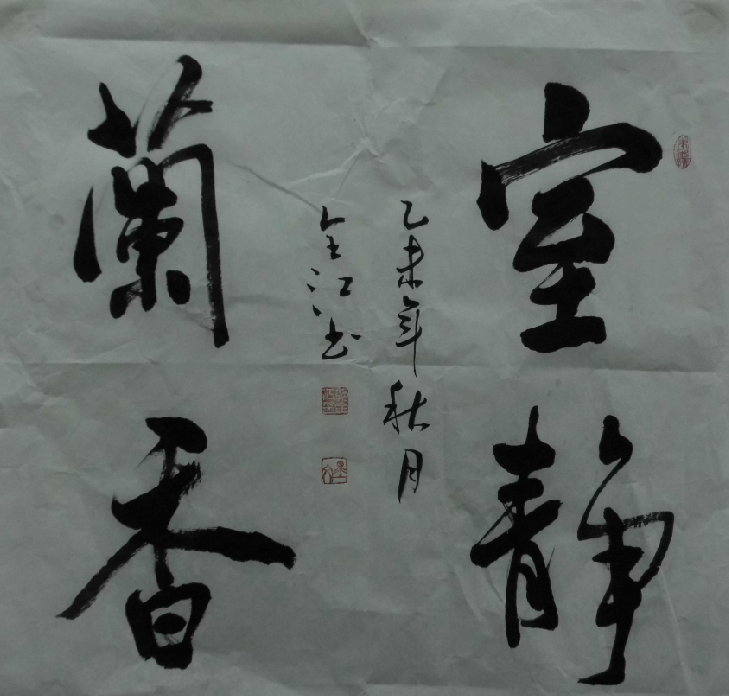 室靜
蘭香
乙未年秋月
全江书